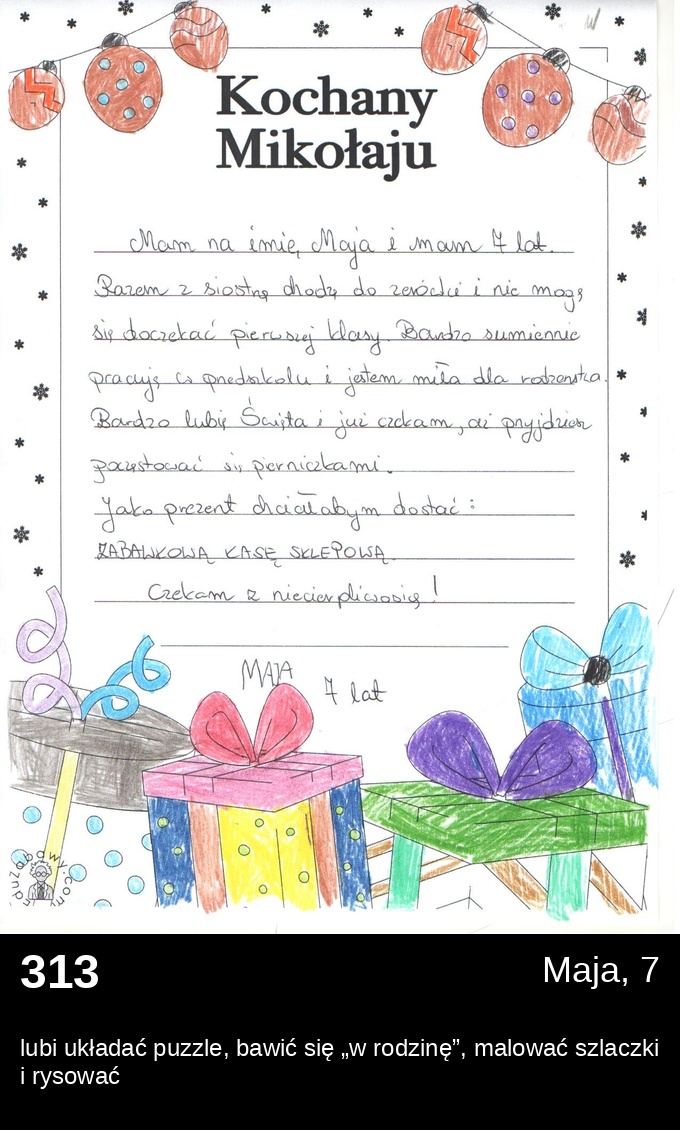 Kochany
Mikołaju
Mam na imię Maja i mam 7 lat.
Razem z siostrą chodzę do zerówki i nie mogę
się doczekać pierwszej klasy. Bardzo sumiennie
pracuję w przedszkolu i jestem miła dla rodzeństwa.
Bardzo lubię Święta i już czekam, aż przyjdziesz
poczęstować się pierniczkami.
Jako prezent chciałabym dostać:
ZABAWKOWĄ KASĘ SKLEPOWĄ.
Czekam z niecierpliwością!
MAJA
7 lat
313
Maja, 7
lubi układać puzzle, bawić się „w rodzinę”, malować szlaczki
i rysować